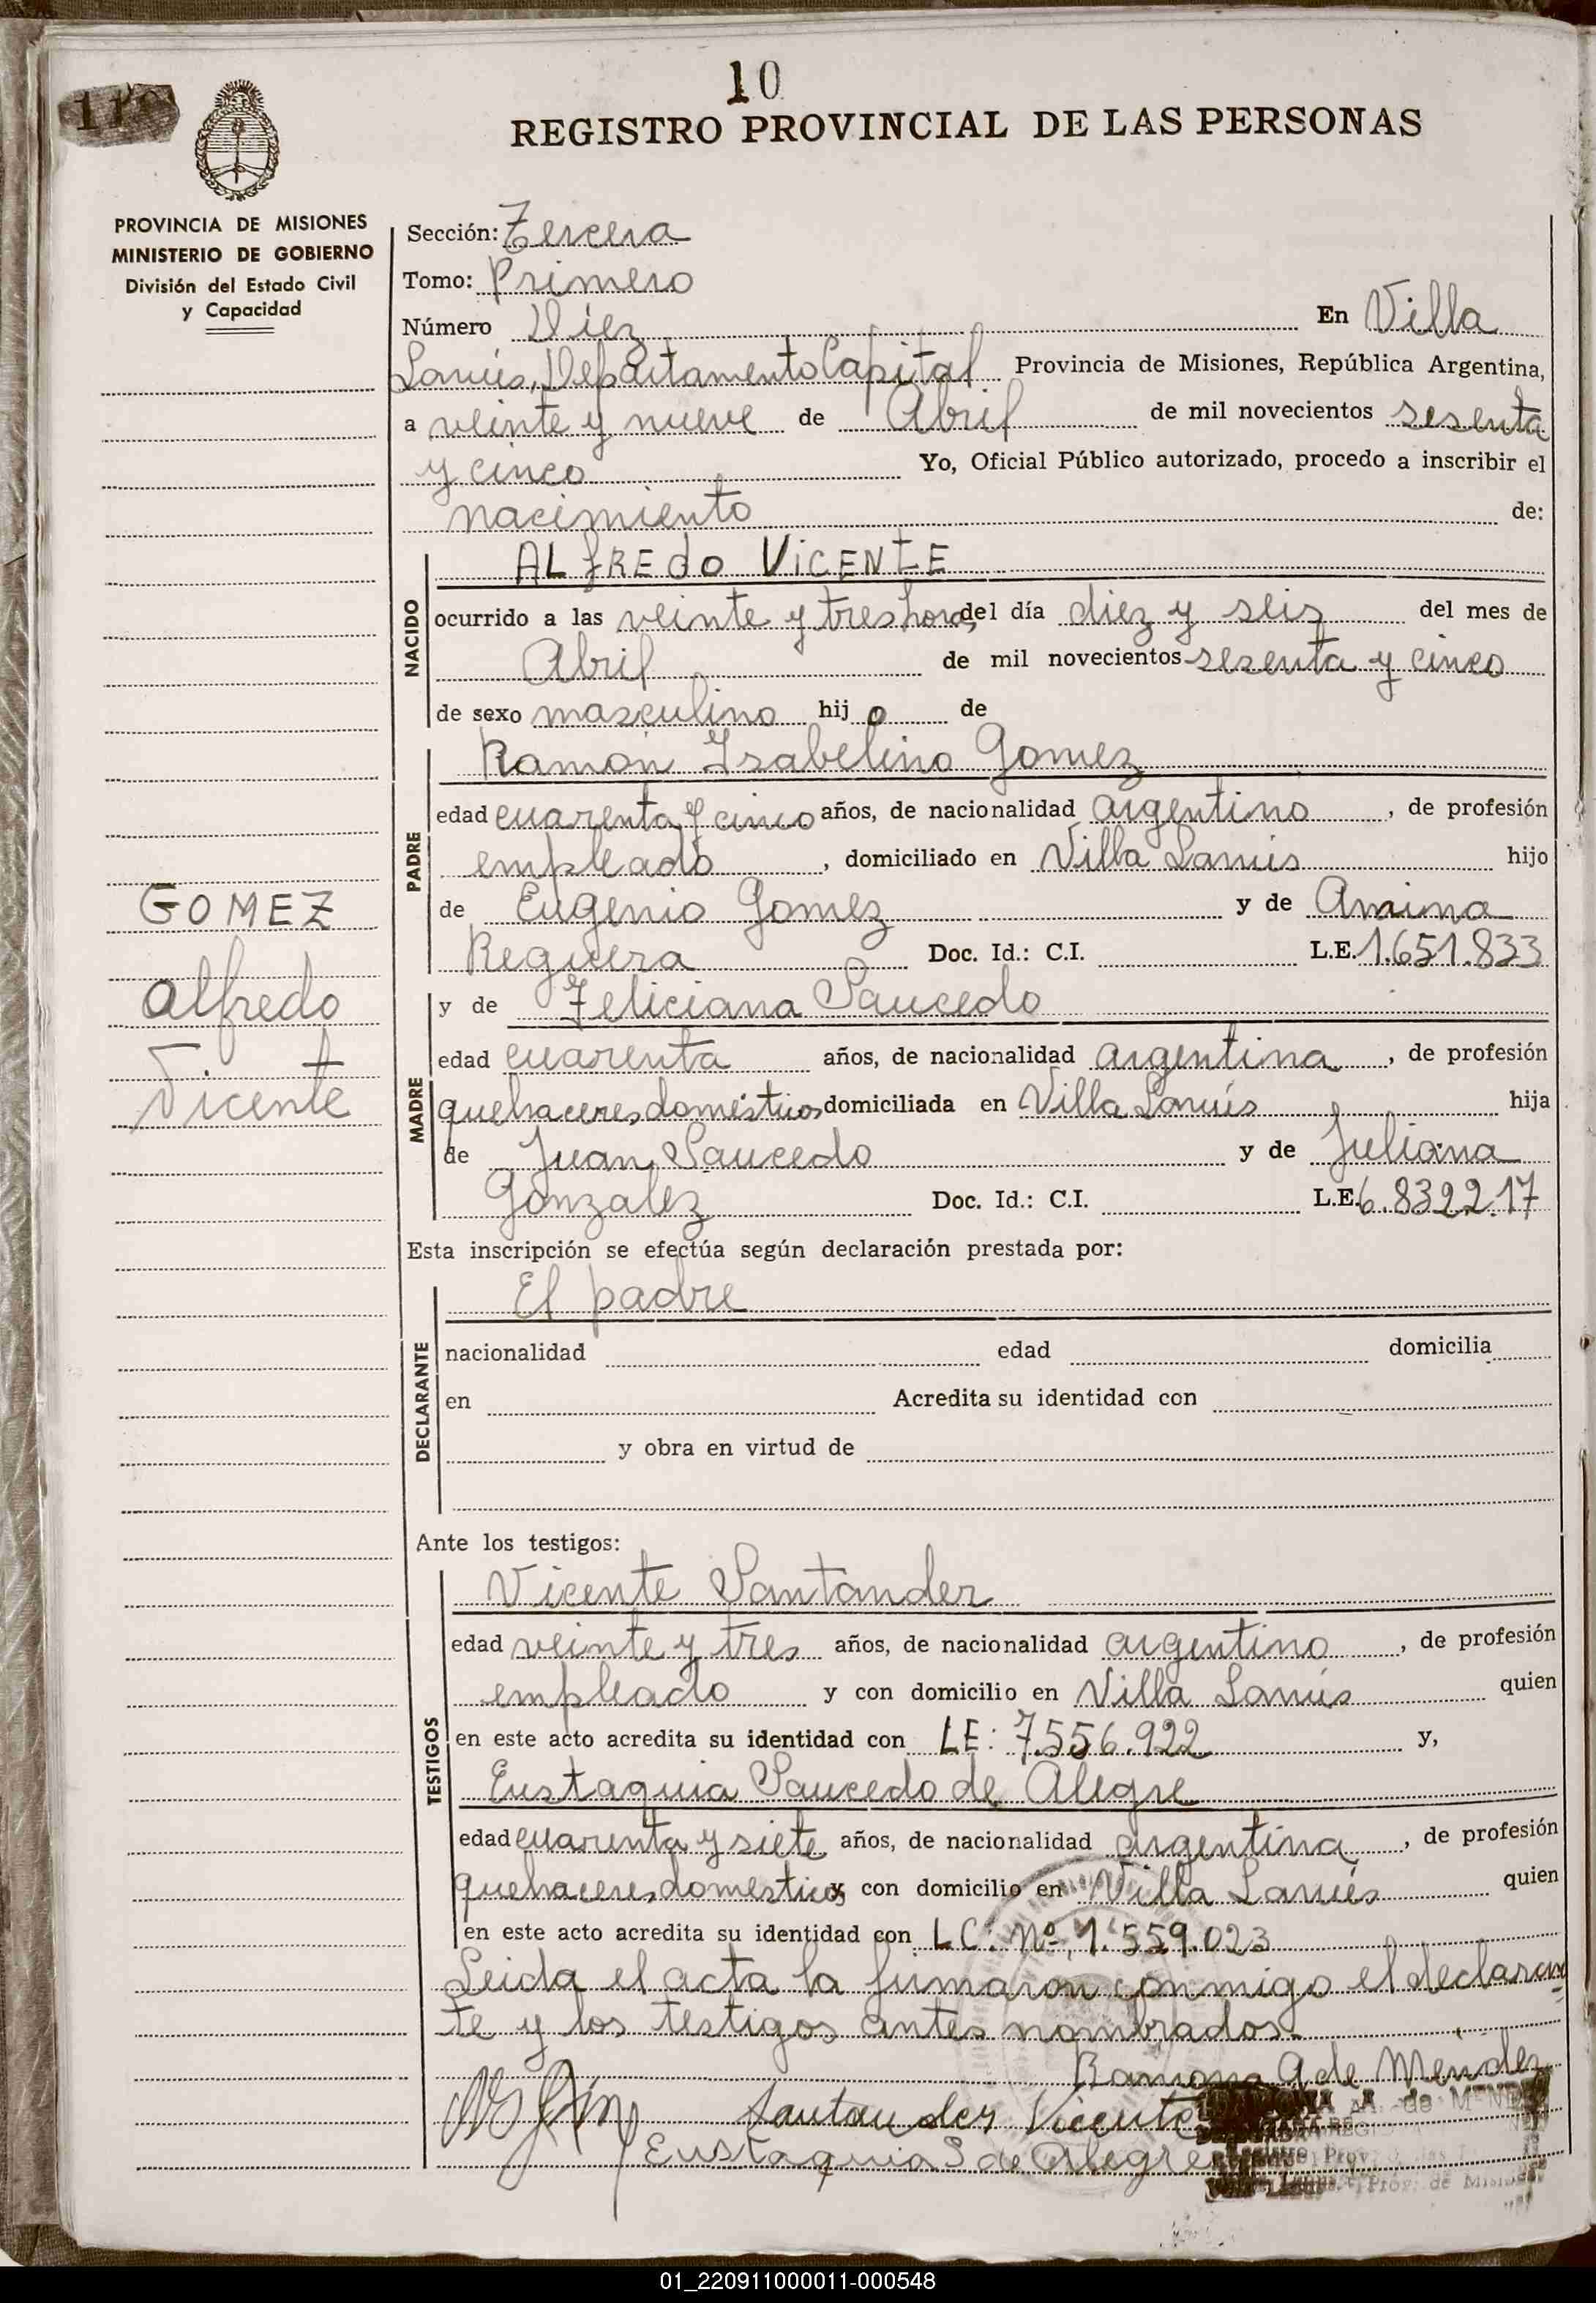 10
110
REGISTRO PROVINCIAL DE LAS PERSONAS
PROVINCIA DE MISIONES
MINISTERIO DE GOBIERNO
División del Estado Civil
y Capacidad
Sección: Tercera
Tomo: Primero
Número Diez En Villa
Lanús, Departamento Capital Provincia de Misiones, República Argentina,
a veinte y nueve de Abril de mil novecientos sesenta
y cinco Yo, Oficial Público autorizado, procedo a inscribir el
nacimiento de:
NACIDO
ALfREdO VICENTE
ocurrido a las veinte y tres horas, del día diez y seis del mes de
Abril de mil novecientos sesenta y cinco
de sexo masculino hijo de
PADRE
Ramón Isabelino Gomez
edad cuarenta y cinco años, de nacionalidad argentino, de profesión
empleado, domiciliado en Villa Lanús hijo
de Eugenio Gomez y de Anaina
Reguera Doc. Id.: C.I. L.E. 1.651.833
GOMEZ
Alfredo
Vicente
MADRE
y de Feliciana Saucedo
edad cuarenta años, de nacionalidad argentina, de profesión
quehaceres domésticos domiciliada en Villa Lanús hija
de Juan Saucedo y de Juliana
Gonzalez Doc. Id.: C.I. L.E. 6.832217
Esta inscripción se efectúa según declaración prestada por:
DECLARANTE
El padre
nacionalidad edad domicilia
en Acredita su identidad con
y obra en virtud de
Ante los testigos:
TESTIGOS
Vicente Santander
edad veinte y tres años, de nacionalidad argentino, de profesión
empleado y con domicilio en Villa Lanús quien
en este acto acredita su identidad con LE: 7.556.922 y,
Eustaquia Saucedo de Alegre
edad cuarenta y siete años, de nacionalidad argentina, de profesión
quehaceres domesticos y con domicilio en Villa Lanús quien
en este acto acredita su identidad con LC: Nº 1.559.023
Leida el acta la firmaron conmigo el declaran
te y los testigos antes nombrados.
Ramona A de Méndez
Santander Vicente
Eustaquia S de Alegre
01_220911000011-000548